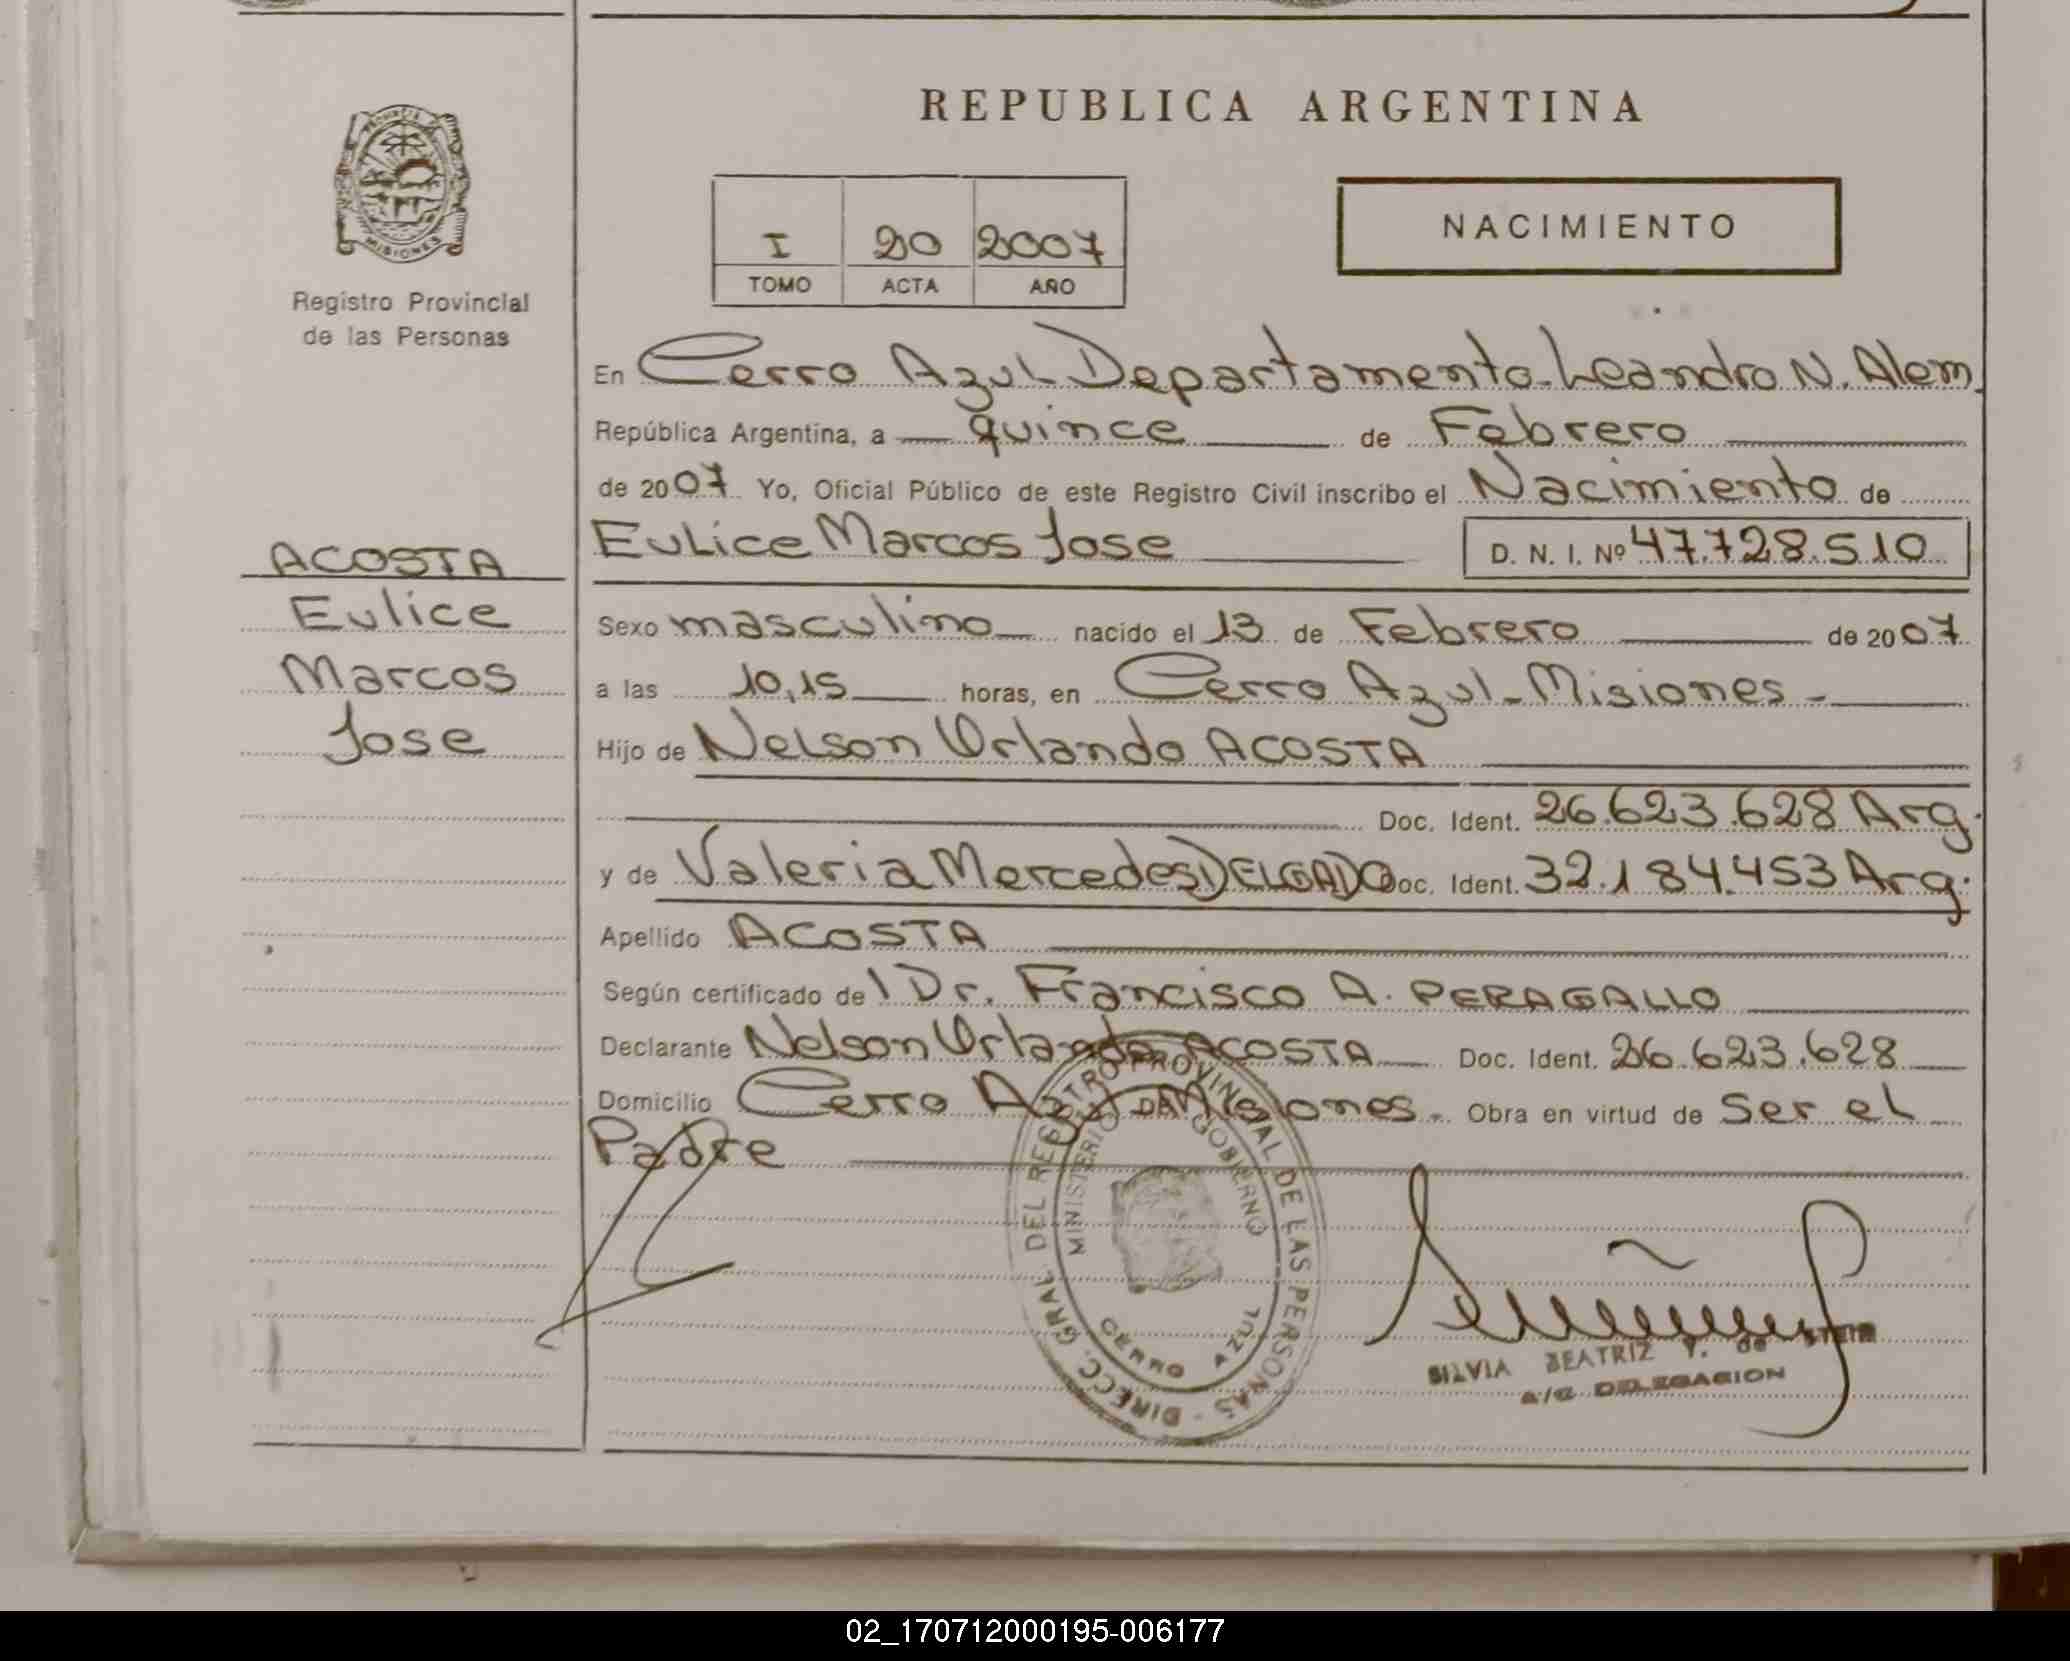 REPUBLICA ARGENTINA
PROVINCIA DE
MISIONES
Registro Provincial
de las Personas
I 20 2007
TOMO ACTA AÑO
NACIMIENTO
En Cerro Azul Departamento Leandro N. Alem
República Argentina, a quince de Febrero
de 2007 Yo, Oficial Público de este Registro Civil inscribo el Nacimiento de
Eulice Marcos Jose D. N. I. Nº 47.728.510
ACOSTA
Eulice
Marcos
Jose
Sexo masculino nacido el 13 de Febrero de 2007
a las 10,15 horas, en Cerro Azul - Misiones -
Hijo de Nelson Orlando ACOSTA
Doc. Ident. 26.623.628 Arg.
y de Valeria Mercedes DELGADO Doc. Ident. 32.184.453 Arg.
Apellido ACOSTA
Según certificado del Dr. Francisco A. PERAGALLO
Declarante Nelson Orlando ACOSTA Doc. Ident. 26.623.628
Domicilio Cerro Azul Misiones - Obra en virtud de Ser el
Padre
DIRECC. GRAL. DEL REGISTRO PROVINCIAL DE LAS PERSONAS -
MINISTERIO DE GOBIERNO
CERRO AZUL
SILVIA BEATRIZ Y. de STEIN
A/C DELEGACION
02_170712000195-006177